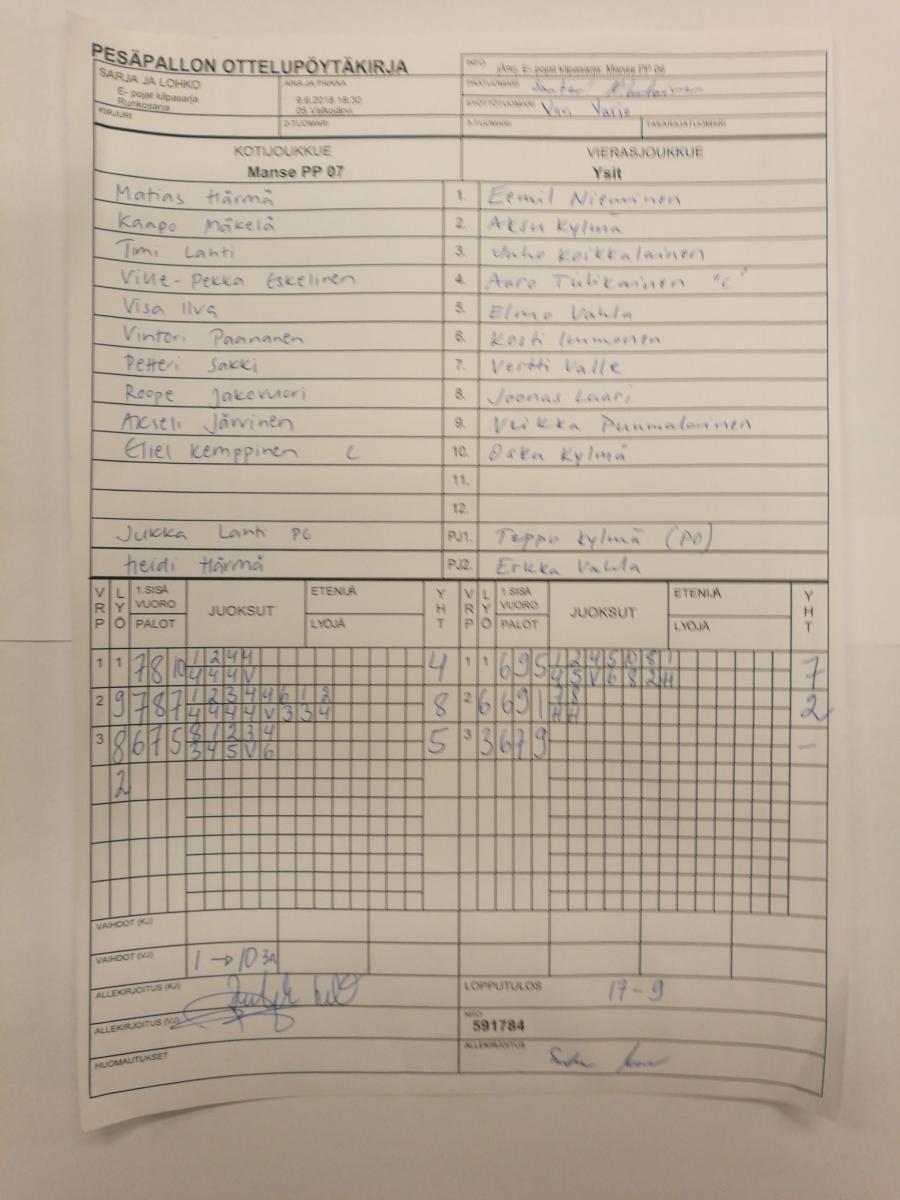 PESÄPALLON OTTELUPÖYTÄKIRJA
SARJA JA LOHKO
E- pojat kilpasarja
Runkosarja
AIKA JA PAIKKA
9.6.2018 18:30
INFO
E- pojat kilpasarja Manse PP 08
PÄÄTUOMARI
SYÖTTÖTUOMARI
KIRJURI
2-TUOMARI
3-TUOMARI
TAKARAJATUOMARI
KOTIJOUKKUE VIERASJOUKKUE
Manse PP 07 Ysit
Matias Härmä 1. Eemil Nieminen
Kaapo Mäkelä 2. Aksu Kylmä
Timi Lahti 3. Juho Koikkalainen
Ville-Pekka Eskelinen 4. Aaro Tiihkainen "C"
Visa Ilva 5. Elmo Vahla
Vintori Paananen 6. Kosti Immonen
Petteri Sakki 7. Vertti Valle
Roope Jakovuori 8. Joonas Laari
Akseli Järvinen 9. Veikka Puumalainen
Eliel Kemppinen C 10. Oska Kylmä
11.
12.
Jukka Lahti PJ1. Teppo Kylmä (PO)
Heidi Härmä PJ2. Erkka Vahla
VRP LYÖ 1.SISÄ VUORO PALOT JUOKSUT ETENIJÄ LYÖJÄ YHT VRP LYÖ 1.SISÄ VUORO PALOT JUOKSUT ETENIJÄ LYÖJÄ YHT
1 1 7 8 10 1 2 4 4 4 1 1 6 9 5 1 2 4 5 10 8 1 7
4 4 4 V 4 5 V 6 8 2 H
2 9 7 8 7 1 2 3 4 4 6 1 2 8 2 6 6 9 1 7 8 2
4 4 4 4 V 3 3 4 H H
3 8 6 7 5 8 1 2 3 4 5 3 3 6 7 9 –
3 4 5 V 6
2
VAIHDOT (KJ)
VAIHDOT (VJ) 1 → 10 3a
ALLEKIRJOITUS (KJ)
LOPPUTULOS 17-9
ALLEKIRJOITUS (VJ)
NRO
591784
HUOMAUTUKSET
ALLEKIRJOITUS